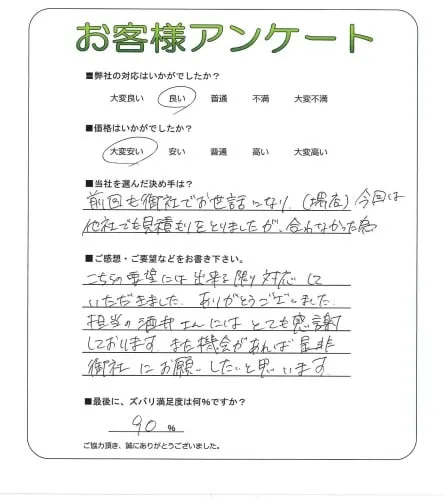 お客様アンケート
■弊社の対応はいかがでしたか？
大変良い 良い 普通 不満 大変不満
■価格はいかがでしたか？
大変安い 安い 普通 高い 大変高い
■当社を選んだ決め手は？
前回も御社でお世話になり、(堺店) 今回は
他社でも見積もりをとりましたが、合わなかった為
■ご感想・ご要望などをお書き下さい。
こちらの要望には出来る限り対応して
いただきました。ありがとうございました。
担当の酒井さんにはとても感謝
しております。また機会があれば是非
御社にお願いしたいと思います。
■最後に、ズバリ満足度は何％ですか？
90 %
ご協力頂き、誠にありがとうございました。